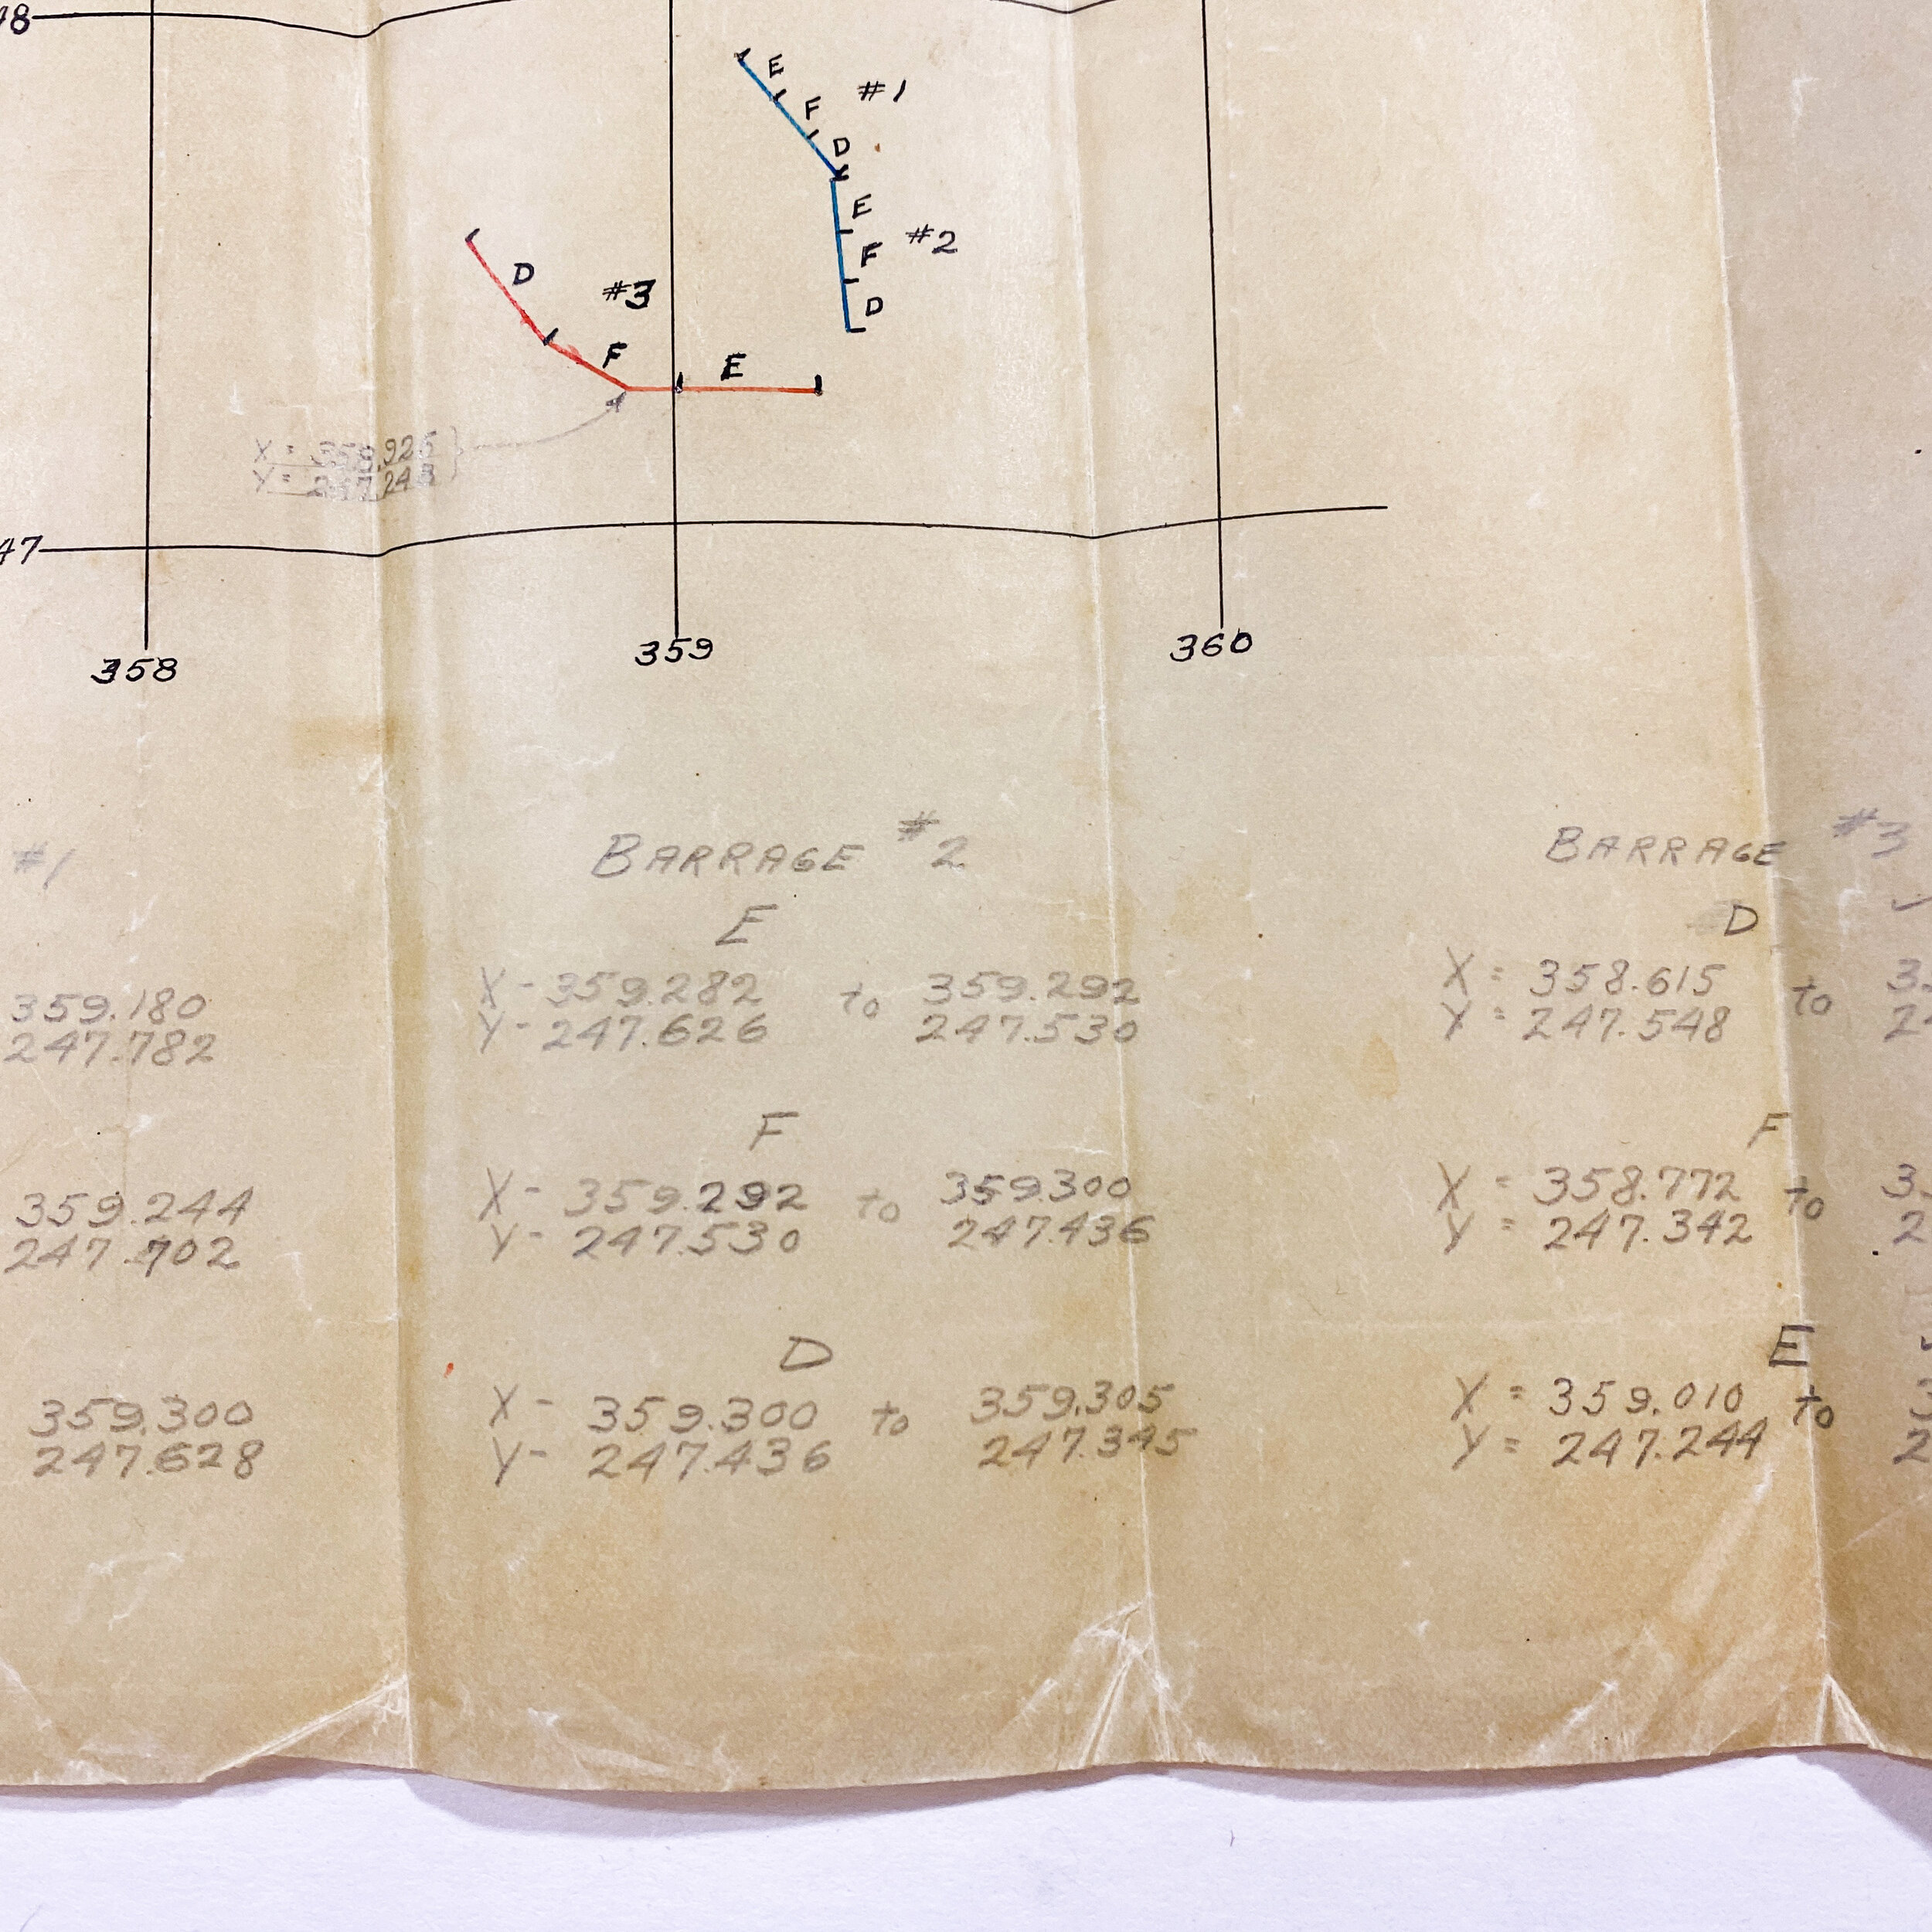 48
E
F
#1
D
E
#2
F
D
D
#3
F
E
X = 359.925
Y = 247.243
47
358
359
360
#1
359.180
247.782
359.244
247.702
359.300
247.628
BARRAGE #2
E
X - 359.282 to 359.292
Y - 247.626 247.530
F
X - 359.292 to 359.300
Y - 247.530 247.436
D
X - 359.300 to 359.305
Y - 247.436 247.345
BARRAGE #3
D ✓
X = 358.615 to 3
Y = 247.548 24
F
X = 358.772 to 3
Y = 247.342 2
E
X = 359.010 to 3
Y = 247.244 2